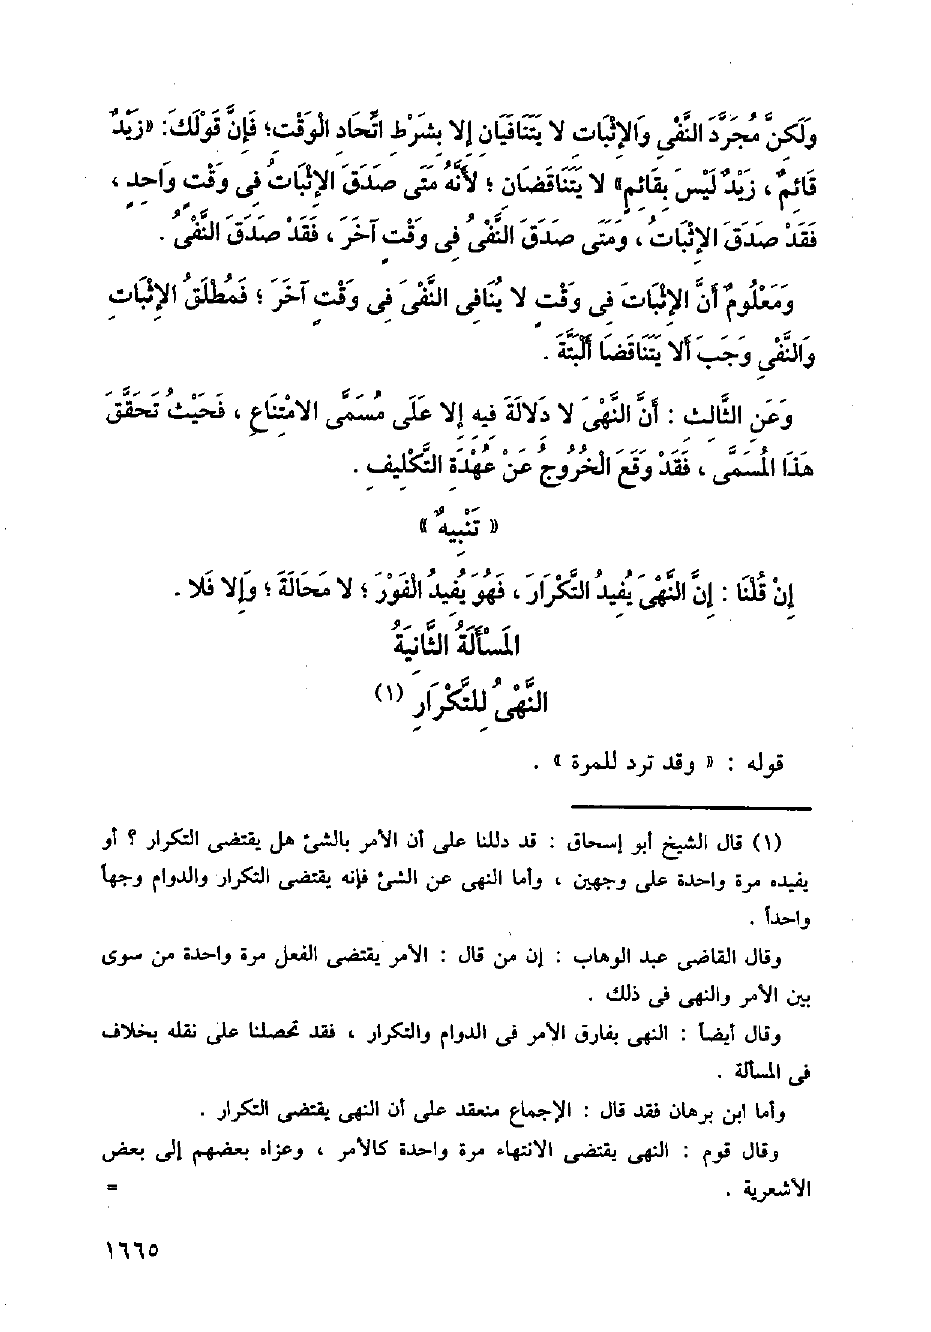 وَلَكِنَّ مُجَرَّدَ النَّفْىِ وَالإِثْبَاتِ لا يَتَنَافَيَانِ إلا بِشَرْطِ اتِّحَادِ الْوَقْتِ؛ فَإِنَّ قَوْلَكَ: «زَيْدٌ
قَائِمٌ ، زَيْدٌ لَيْسَ بِقَائِمٍ» لا يَتَنَاقَضَانِ ؛ لأَنَّهُ مَتَى صَدَقَ الإِثْبَاتُ فِى وَقْتٍ وَاحِدٍ ،
فَقَدْ صَدَقَ الإِثْبَاتُ ، وَمَتَى صَدَقَ النَّفْىُ فِى وَقْتٍ آخَرَ ، فَقَدْ صَدَقَ النَّفْىُ .
وَمَعْلُومٌ أَنَّ الإِثْبَاتَ فِى وَقْتٍ لا يُنَافِى النَّفْىَ فِى وَقْتٍ آخَرَ ؛ فَمُطْلَقُ الإِثْبَاتِ
وَالنَّفْىِ وَجَبَ أَلا يَتَنَاقَضَا أَلْبَتَّةَ .
وَعَنِ الثَّالِثِ : أَنَّ النَّهْىَ لا دَلالَةَ فِيهِ إلا عَلَى مُسَمَّى الامْتِنَاعِ ، فَحَيْثُ تَحَقَّقَ
هَذَا الْمُسَمَّى ، فَقَدْ وَقَعَ الْخُرُوجُ عَنْ عُهْدَةِ التَّكْلِيفِ .
« تَنْبِيهٌ »
إِنْ قُلْنَا : إِنَّ النَّهْىَ يُفِيدُ التَّكْرَارَ ، فَهُوَ يُفِيدُ الْفَوْرَ ؛ لا مَحَالَةَ ؛ وَإِلا فَلا .
الْمَسْأَلَةُ الثَّانِيَةُ
النَّهْىُ لِلتَّكْرَارِ (١)
قوله : « وقد ترد للمرة » .
(١) قال الشيخ أبو إسحاق : قد دللنا على أن الأمر بالشئ هل يقتضى التكرار ؟ أو
يفيده مرة واحدة على وجهين ، وأما النهى عن الشئ فإنه يقتضى التكرار والدوام وجها
واحداً .
وقال القاضى عبد الوهاب : إن من قال : الأمر يقتضى الفعل مرة واحدة من سوى
بين الأمر والنهى فى ذلك .
وقال أيضاً : النهى يفارق الأمر فى الدوام والتكرار ، فقد تحصلنا على نقله بخلاف
فى المسألة .
وأما ابن برهان فقد قال : الإجماع منعقد على أن النهى يقتضى التكرار .
وقال قوم : النهى يقتضى الانتهاء مرة واحدة كالأمر ، وعزاه بعضهم إلى بعض
الأشعرية . =
١٦٦٥